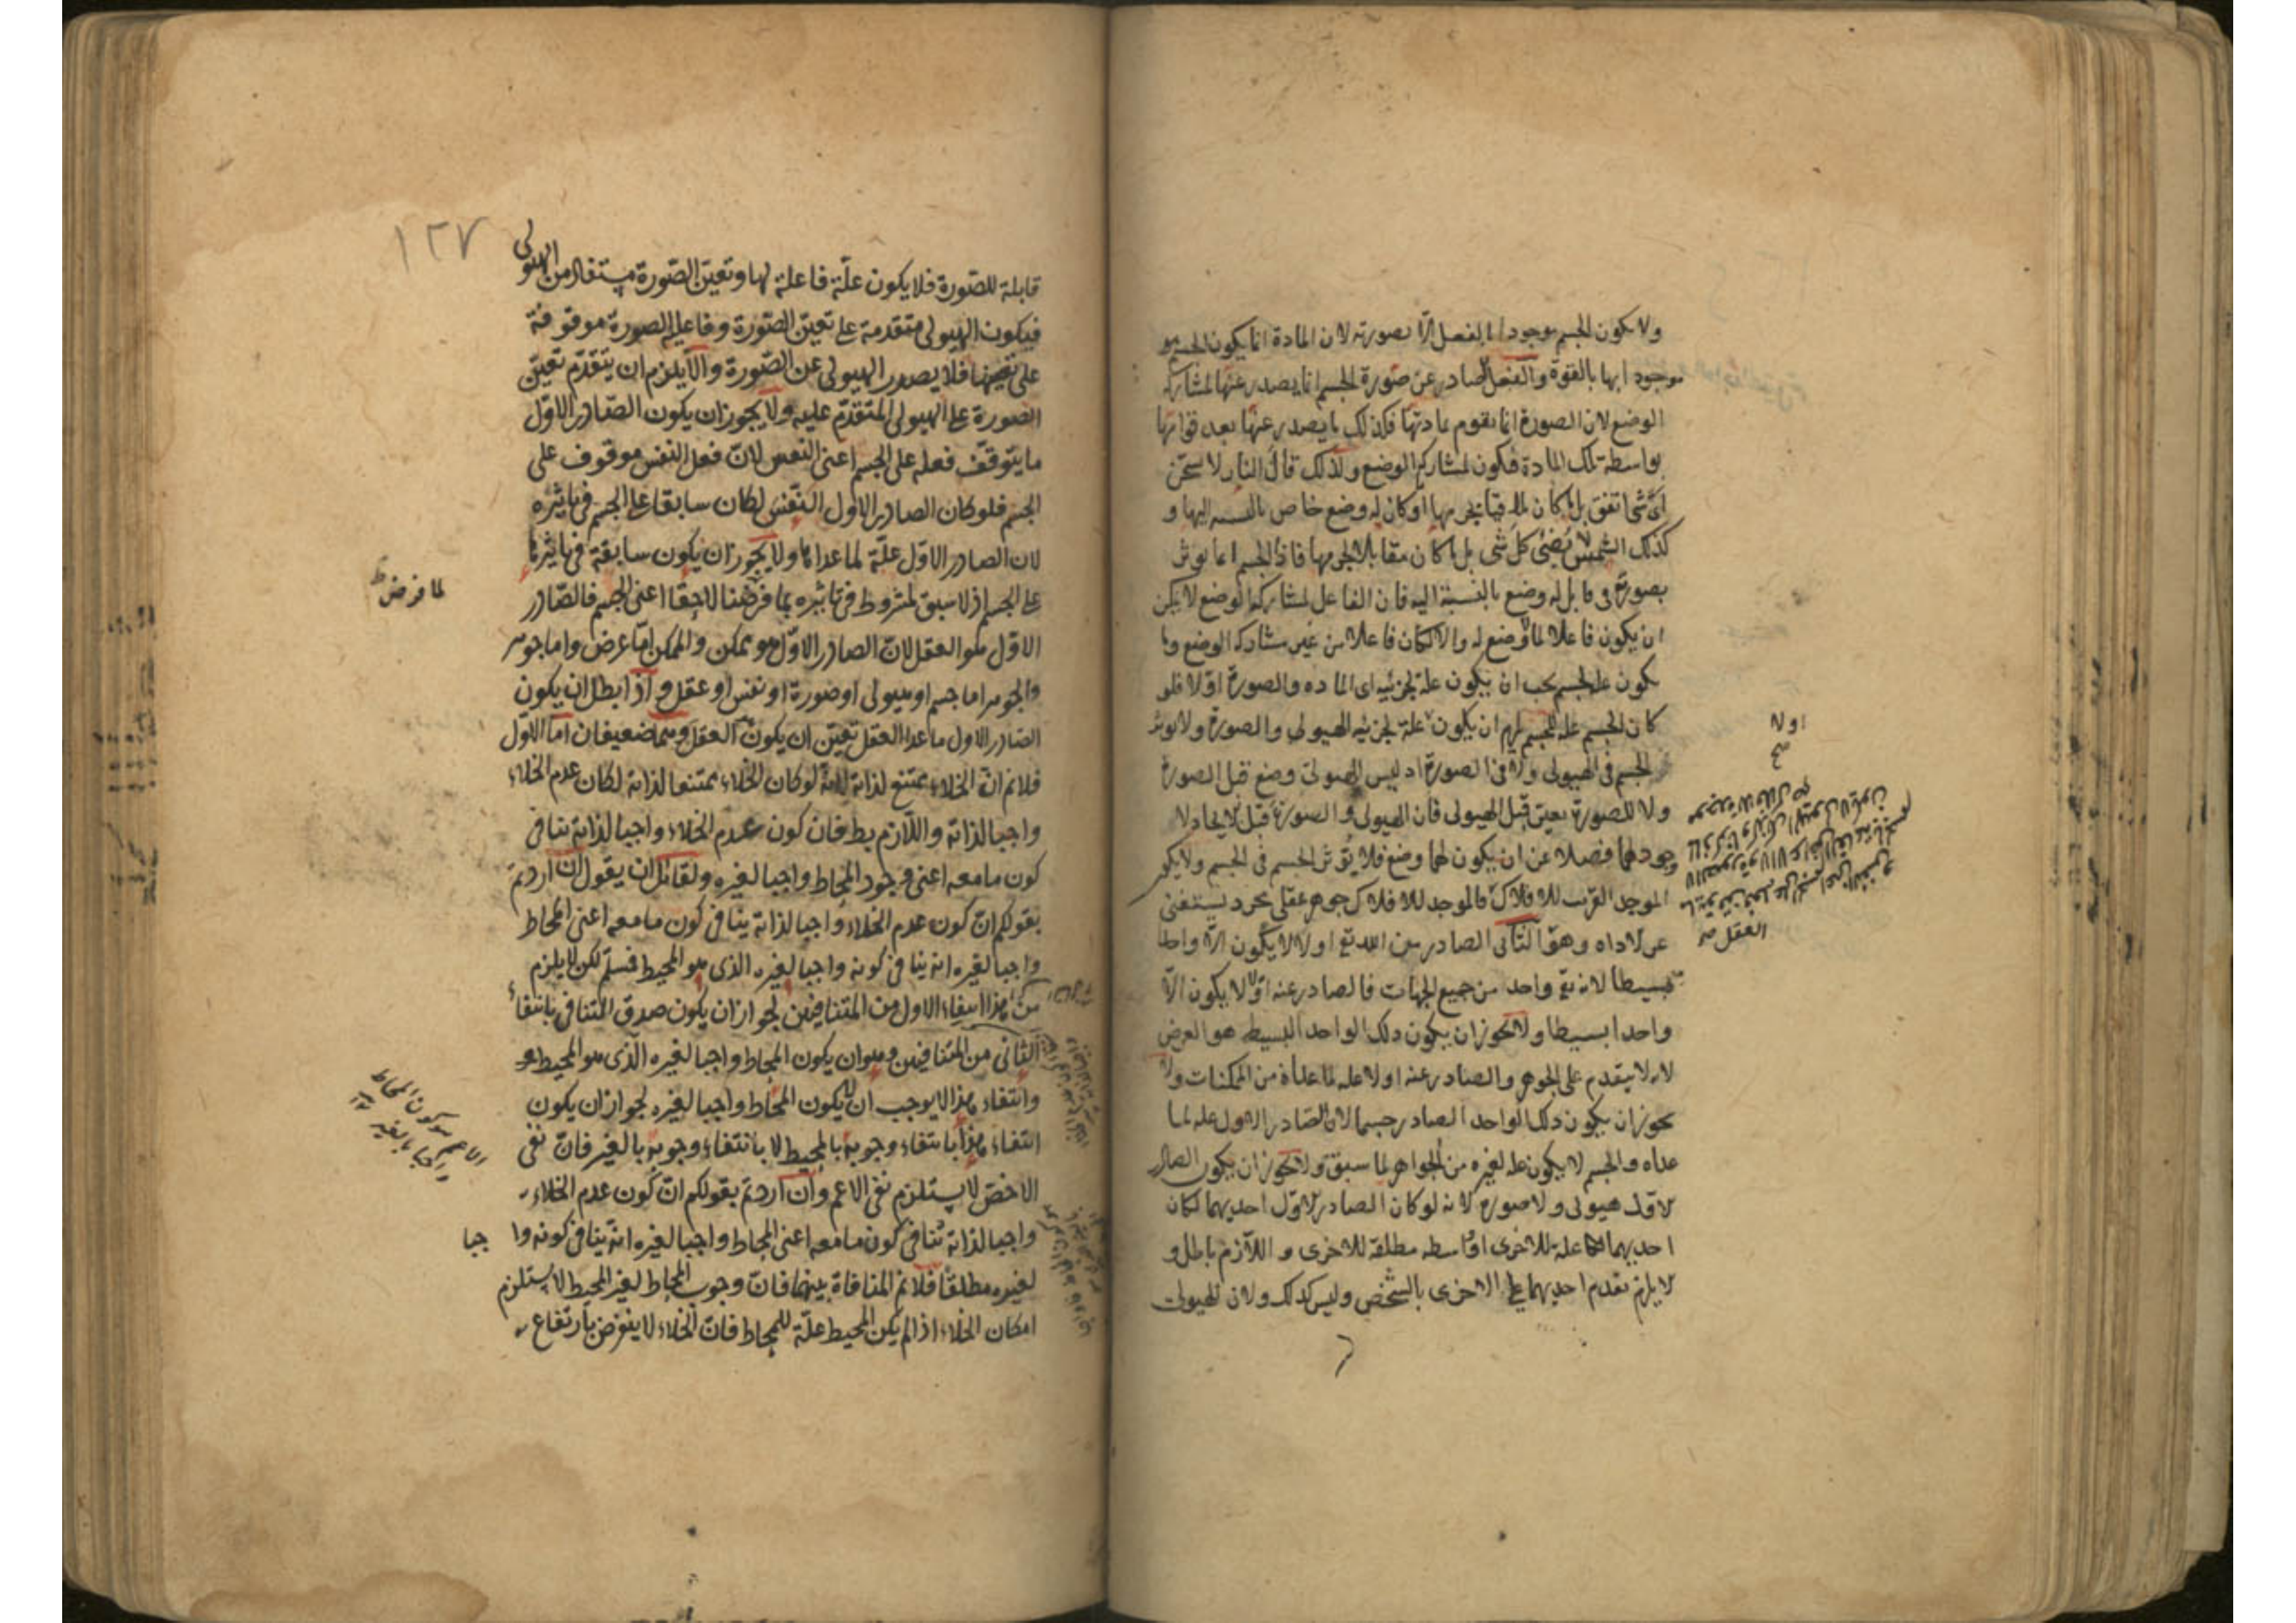 ولا يكون الجسم موجودا بالفعل الا بصورته لان المادة انما يكون الجسم هو
موجودا بها بالقوة والفعل الصادر عن صورة الجسم انما يصدر عنها لمشاركة
الوضع لان الصورة انما تقوم بمادتها فكذلك ما يصدر عنها بعد قوامها
بواسطة تلك المادة فيكون لمشاركة الوضع ولذلك قال النار لا تسخن
اى شى اتفق بل ما كان ملاقيا لجرمها او كان له وضع خاص بالنسبة اليها و
كذلك الشمس لا تضئ كل شى بل ما كان مقابلا لجرمها فاذا الجسم انما يوثر
بصورته فى قابل له وضع بالنسبة اليه فان الفاعل لمشاركة الوضع لا يمكن
ان يكون فاعلا لما لا وضع له والا لكان فاعلا من غير مشاركة الوضع وما
يكون علة لجسم يجب ان يكون علة لجزئيه اى المادة والصورة اولا فلو
كان الجسم علة للجسم لزم ان يكون علة لجزئيه الهيولى والصورة ولا يوثر
الجسم فى الهيولى ولا فى الصورة اذ ليس للهيولى وضع قبل الصورة
ولا للصورة تعين قبل الهيولى فان الهيولى والصورة قبل الايجاد لا
وجود لهما فضلا عن ان يكون لهما وضع فلا يؤثر الجسم فى الجسم ولا يكون
الموجد القريب للافلاك فالموجد للافلاك جوهر عقلى مجرد يستغنى
عن الاداه وهو الثانى الصادر من الله تع اولا لا يكون الا واحدا
بسيطا لانه تع واحد من جميع الجهات فالصادر عنه اولا لا يكون الا
واحدا بسيطا ولا يجوز ان يكون ذلك الواحد البسيط هو العرض
لانه لا يتقدم على الجوهر والصادر عنه اولا علة لما عداه من الممكنات ولا
يجوز ان يكون ذلك الواحد الصادر جسما لان الصادر الاول علة لما
عداه والجسم لا يكون علة لغيره من الجواهر لما سبق ولا يجوز ان يكون الصادر
الاول هيولى ولا صورة لانه لو كان الصادر الاول احديهما لكان
احديهما علة للاخرى او واسطة مطلقة للاخرى واللازم باطل و
لا يلزم تقدم احديهما على الاخرى بالشخص وليس كذلك ولان الهيولى
اولا
العقل صح
١٢٧
قابلة للصورة فلا يكون علة فاعلة لها وتعين الصورة مستفاد من الهيولى
فيكون الهيولى متقدمة على تعين الصورة وفاعلية الصورة موقوفة
على تعينها فلا يصدر الهيولى عن الصورة والا يلزم ان يتقدم تعين
الصورة على الهيولى المتقدم عليه ولا يجوز ان يكون الصادر الاول
ما يتوقف فعله على الجسم اعنى النفس لان فعل النفس موقوف على
الجسم فلو كان الصادر الاول النفس لكان سابقا على الجسم فى تاثيره
لان الصادر الاول علة لما عداها ولا يجوز ان يكون سابقة فى تاثيرها
على الجسم اذ لا سبق لمشروط فى تاثيره بما فرضنا لاحقا اعنى الجسم فالصادر
الاول هو العقل لان الصادر الاول هو ممكن والممكن اما عرض واما جوهر
والجوهر اما جسم او هيولى او صورة او نفس او عقل واذا بطل ان يكون
الصادر الاول ما عدا العقل تعين ان يكون العقل وهما ضعيفان اما الاول
فلانم ان الخلاء ممتنع لذاته لانه لو كان الخلاء ممتنعا لذاته لكان عدم الخلاء
واجبا لذاته واللازم بط فان كون عدم الخلاء واجبا لذاته ينافى
كون ما معه اعنى وجود المحاط واجبا لغيره ولقائل ان يقول ان اردتم
بقولكم ان كون عدم الخلاء واجبا لذاته ينافى كون ما معه اعنى المحاط
واجبا لغيره انه ينافى كونه واجبا لغيره الذى هو المحيط فسلم لكن لا يلزم
من هذا انتفاء الاول من المتنافيين لجواز ان يكون صدق التنافى بانتفاء
الثانى من المتنافيين وهو ان يكون المحاط واجبا لغيره الذى هو المحيط
وانتفاء هذا لا يوجب ان لا يكون المحاط واجبا لغيره لجواز ان يكون
انتفاء هذا بانتفاء وجوبه بالمحيط لا بانتفاء وجوبه بالغير فان نفى
الاخص لا يستلزم نفى الاعم وان اردتم بقولكم ان كون عدم الخلاء
واجبا لذاته تنافى كون ما معه اعنى المحاط واجبا لغيره انه ينافى كونه وا جبا
لغيره مطلقا فلانم المنافاة بينهما فان وجوب المحاط لغير المحيط لا يستلزم
امكان الخلاء اذا لم يكن المحيط علة للمحاط فان الخلاء لا يفرض بارتفاع
لما فرض ظ
الاعم هو كون المحاط
واجبا بالغير